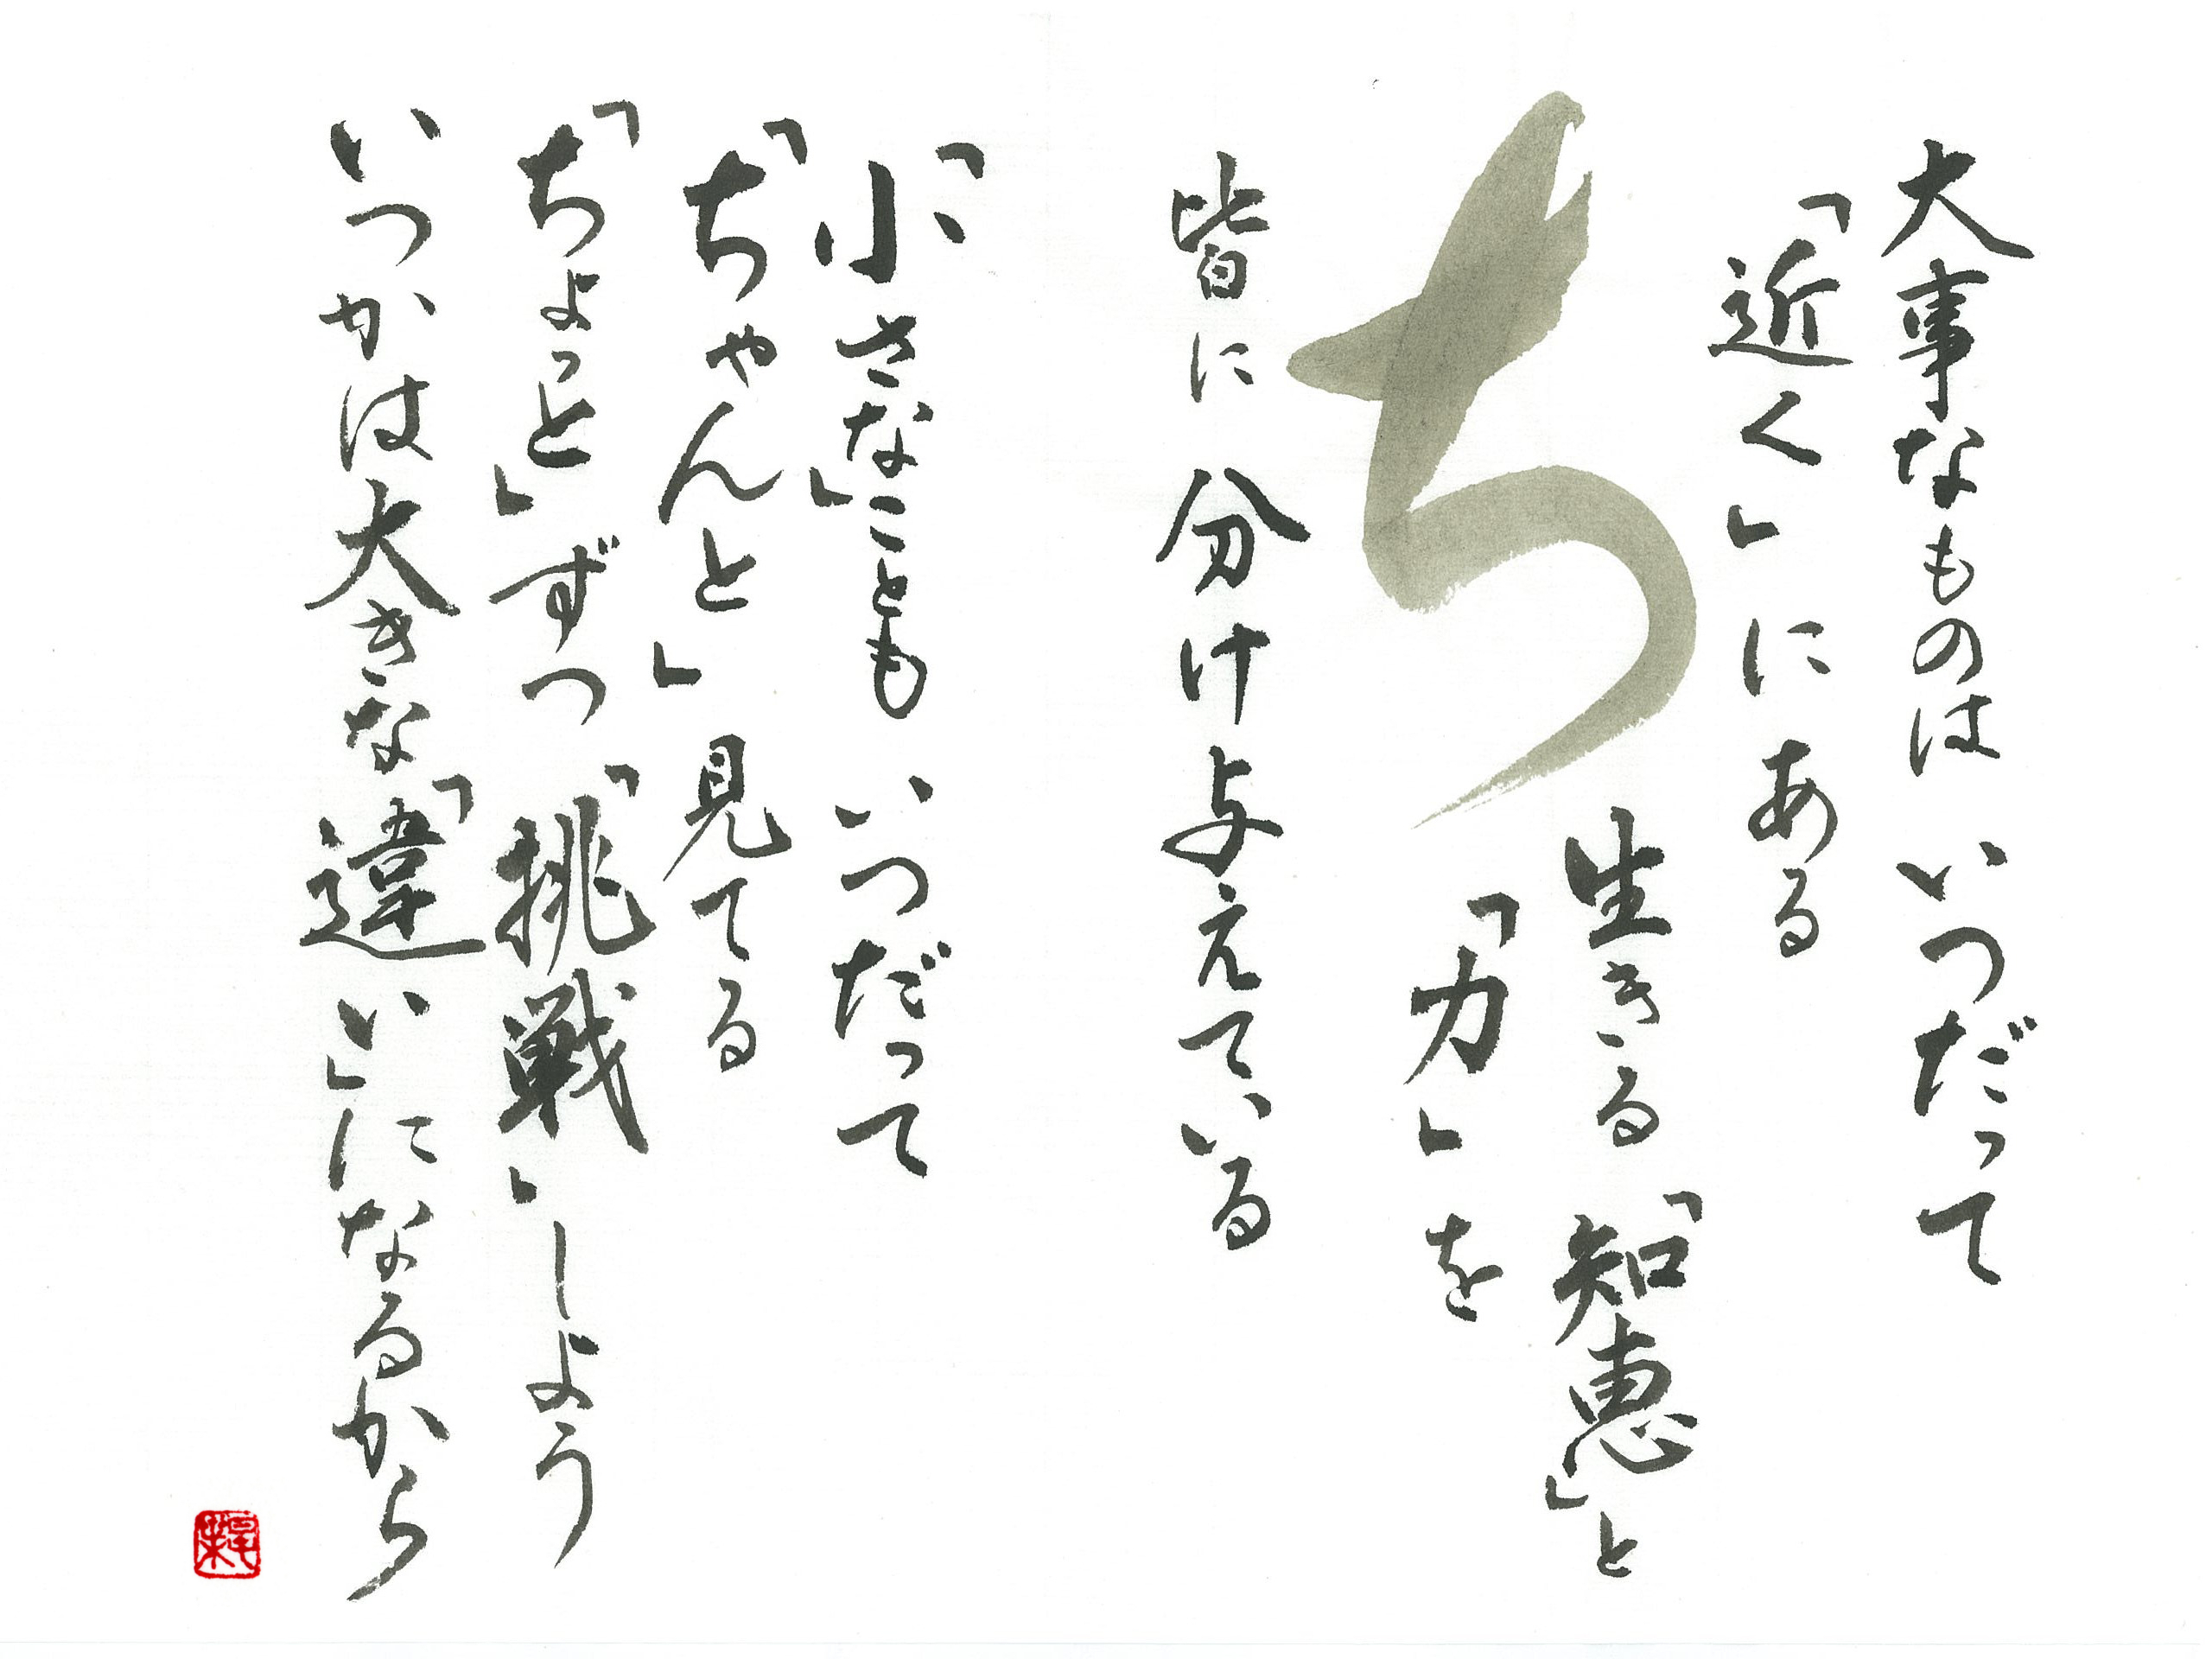 大事なものは いつだって
「近く」にある
ち
生きる「知恵」と
「力」を
皆に分け与えている
「小さな」ことも いつだって
「ちゃんと」見てる
「ちょっと」ずつ「挑戦」しよう
いつかは大きな「違い」になるから